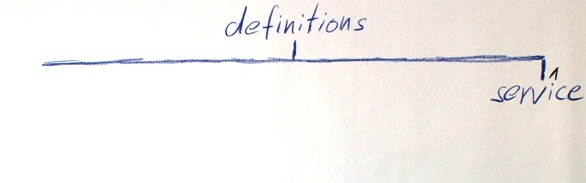 definitions
1
service